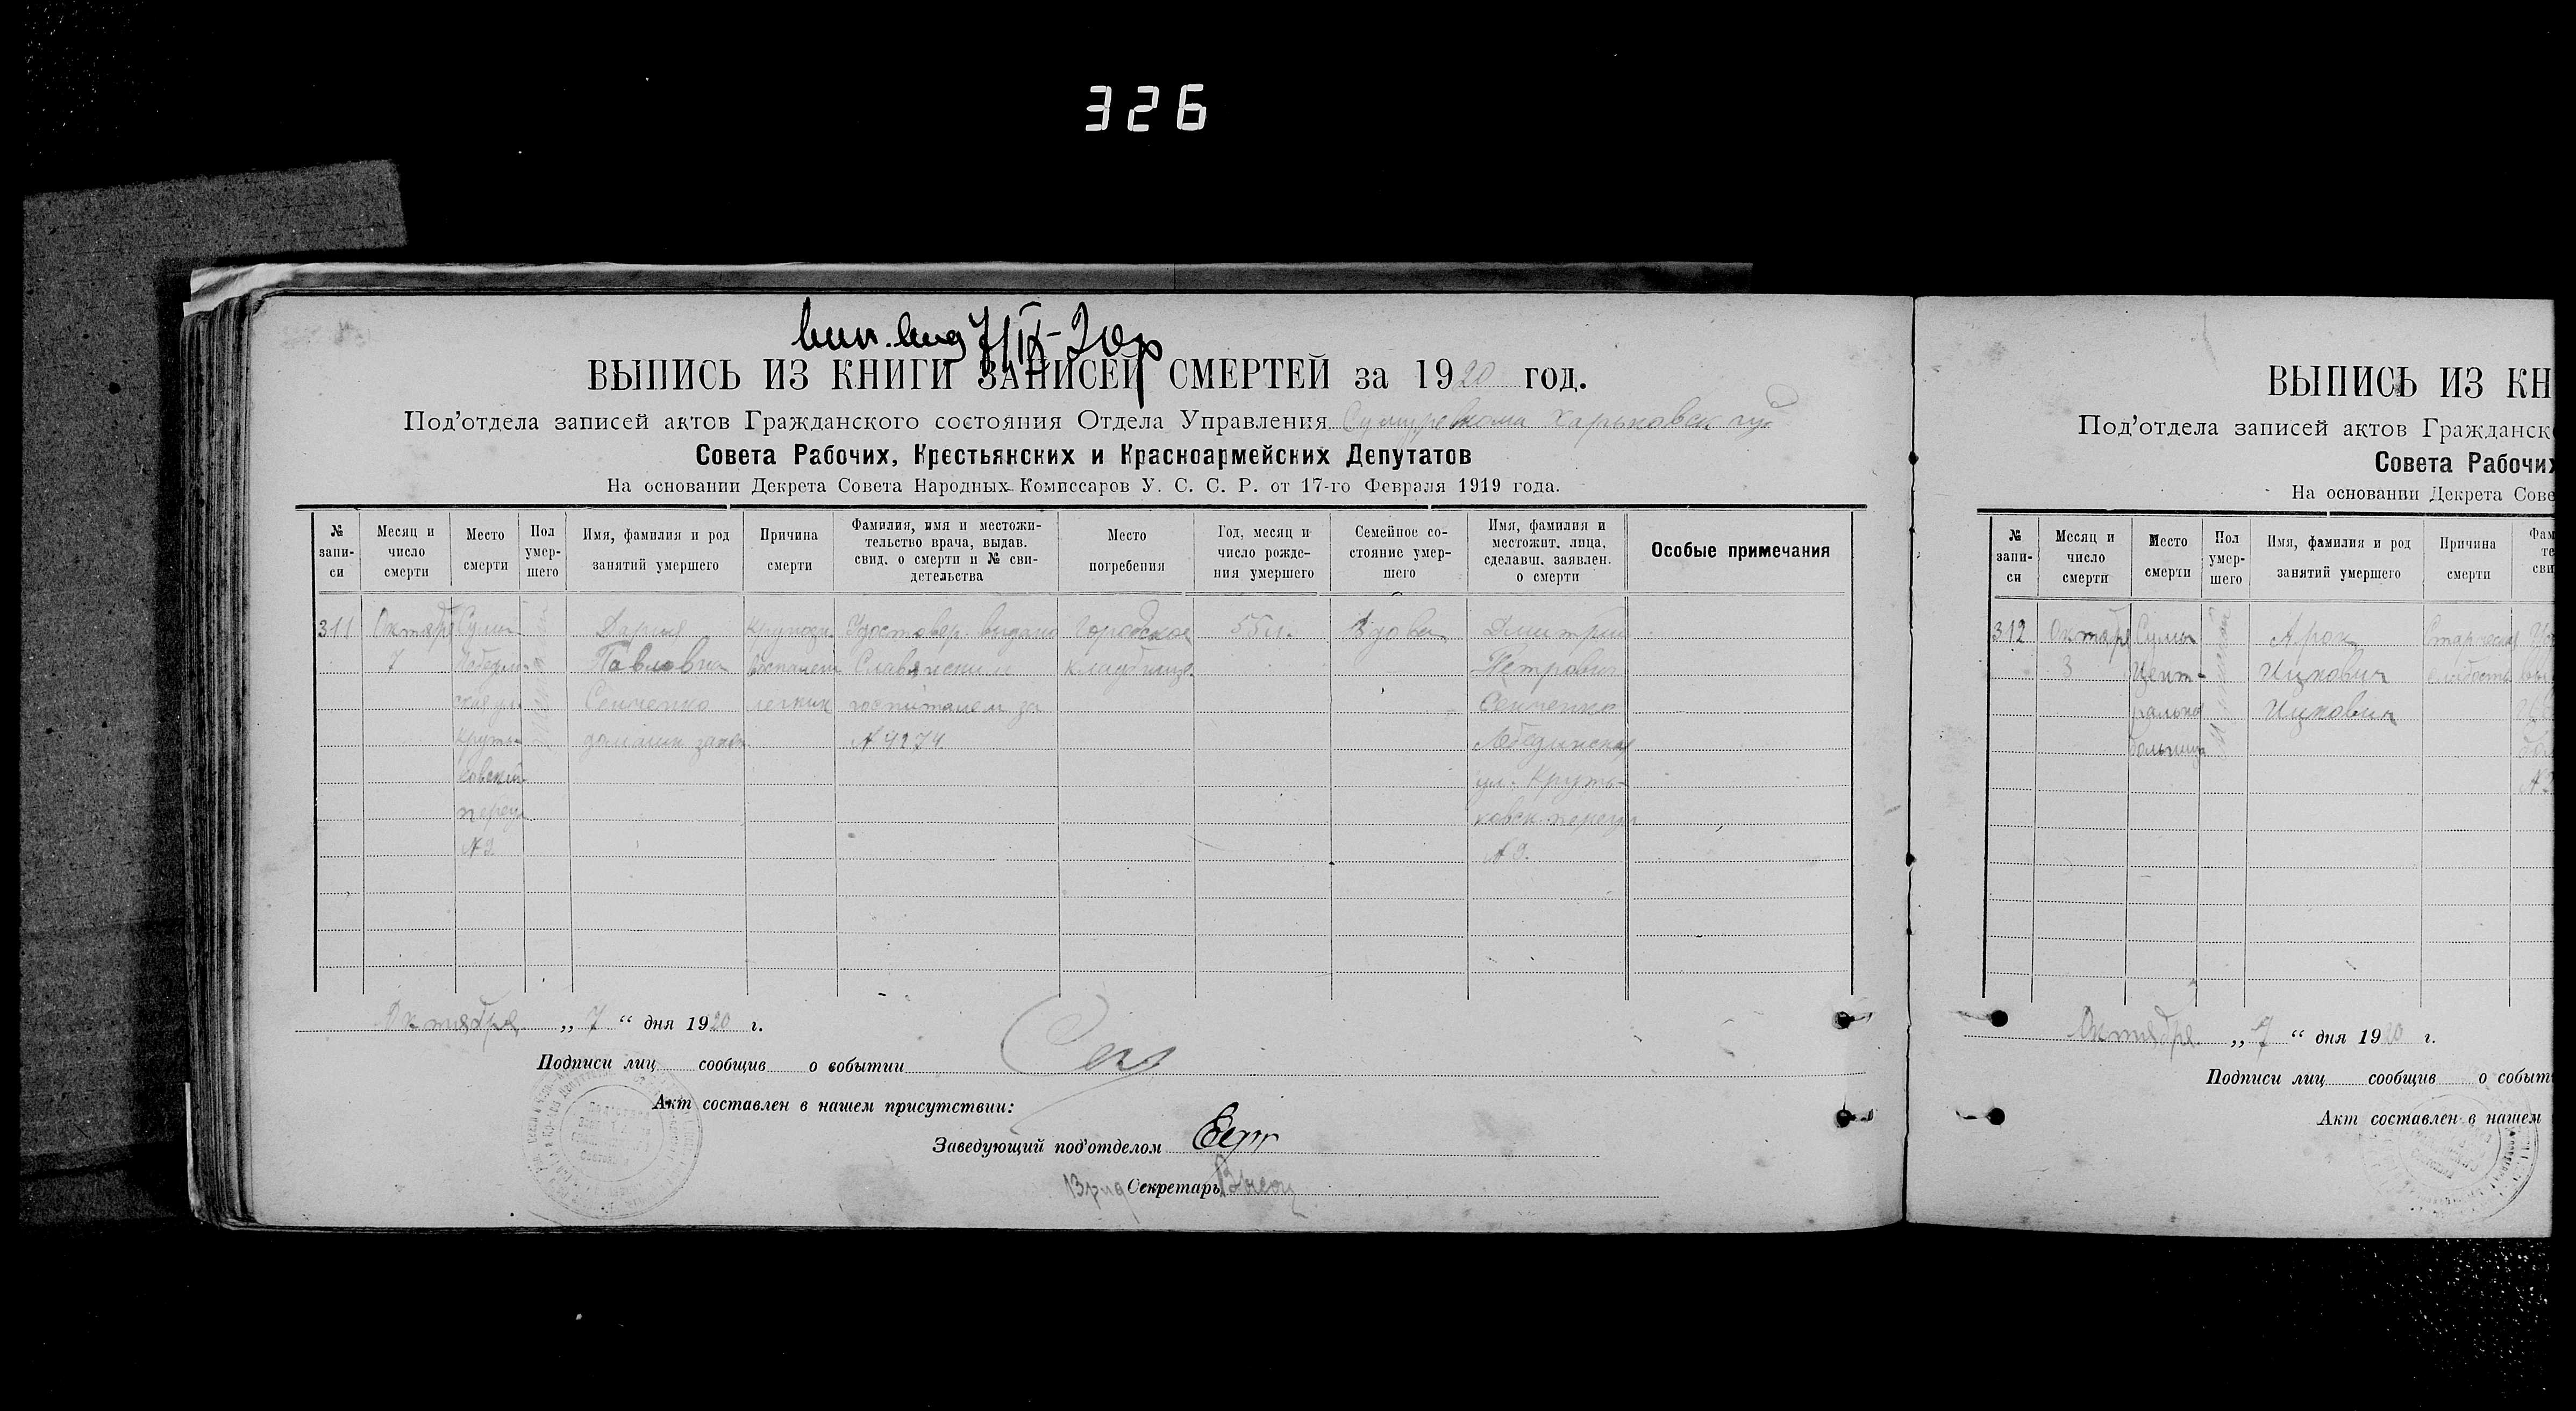 326
7/IX-
ВЫПИСЬ ИЗ КНИГИ ЗАПИСЕЙ СМЕРТЕЙ за 1920 год.
Под'отдела записей актов Гражданского состояния Отдела Управления Харьковск. губ.
Совета Рабочих, Крестьянских и Красноармейских Депутатов
На основании Декрета Совета Народных Комиссаров У. С. С. Р. от 17-го Февраля 1919 года.
№ запи-си
Месяц и число смерти
Место смерти
Пол умер-шего
Имя, фамилия и род занятий умершего
Причина смерти
Фамилия, имя и местожи-тельство врача, выдав. свид. о смерти и № сви-детельства
Место погребения
Год, месяц и число рожде-ния умершего
Семейное со-стояние умер-шего
Имя, фамилия и местожит. лица, сделавш. заявлен. о смерти
Особые примечания
311
Октября
7
Сумы
Дарья
Павловна
Сенченко
легких
Удостовер. выдано
Славянским
госпиталем за
№ 4274
Городское
кладбище
55 л.
Вдова
Дмитрий
Петрович
Сенченко
Лебединская
ул. Круть-
ковск. переул
№ 9.
Октября „ 7 “ дня 1920 г.
Подписи лиц сообщив о событии
Акт составлен в нашем присутствии:
Заведующий под'отделом
Секретарь
ВЫПИСЬ ИЗ КН
Под'отдела записей актов Гражданск
Совета Рабочих
На основании Декрета Сове
№ запи-си
Месяц и число смерти
Место смерти
Пол умер-шего
Имя, фамилия и род занятий умершего
Причина смерти
312
Октября
3
Сумы
Цент-
ральная
больница
Арон
Ицкович
Ицкович
Старческая
слабость
Октября „ 7 “ дня 1920 г.
Подписи лиц сообщив о событ
Акт составлен в нашем